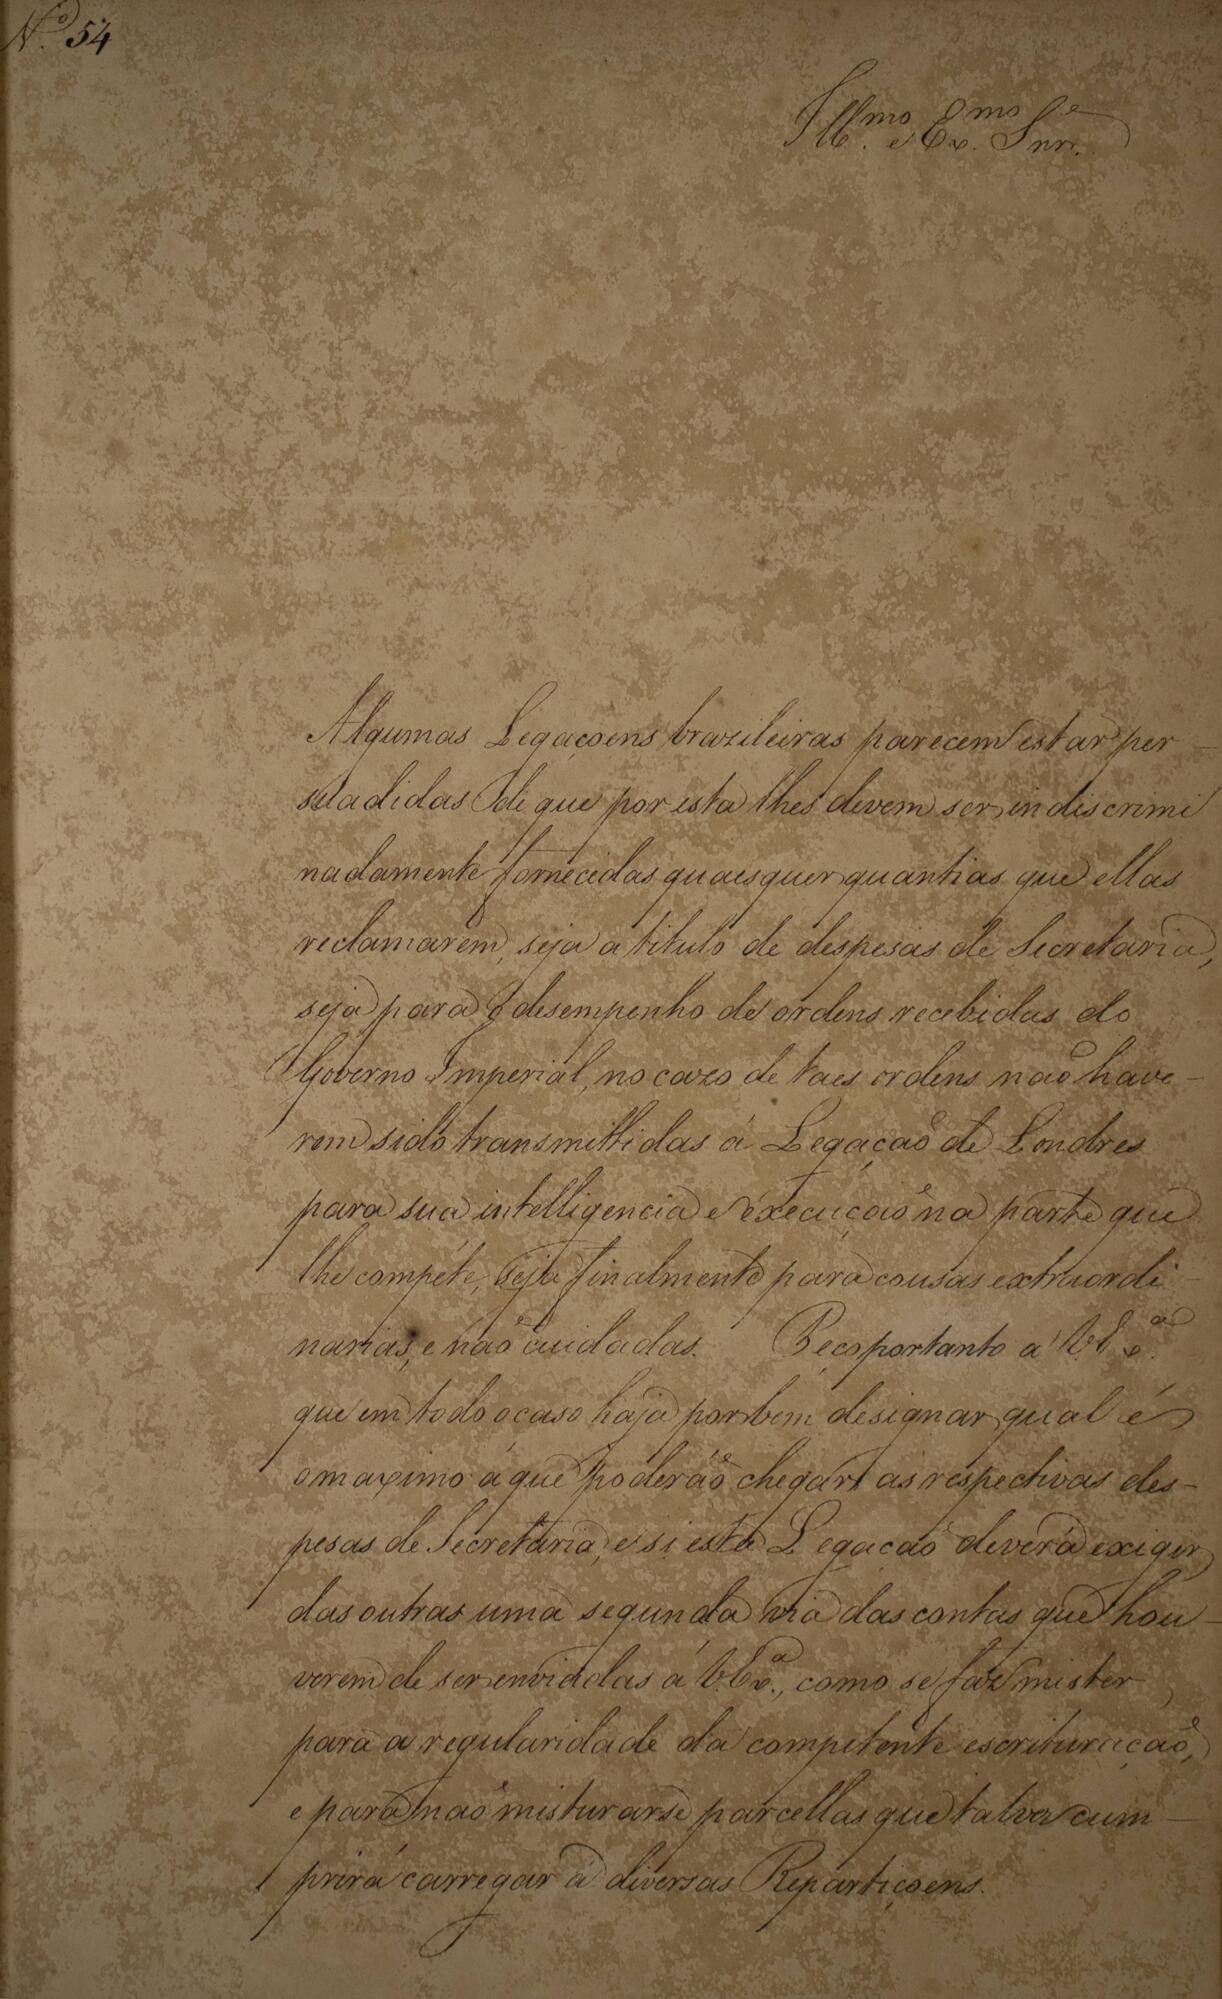 Nº 54
Ill.mo e Ex.mo Snr.
Algumas Legaçoens brazileiras parecem estar per-
suadidas de que por esta lhes devem ser indiscrimi
nadamente fornecidas quaesquer quantias que ellas
reclamarem, seja a titulo de despesas de Secretaria,
seja para o desempenho de ordens recebidas do
Governo Imperial, no cazo de taes ordens naõ have-
rem sido transmittidas á Legaçaõ de Londres
para sua intelligencia e execuçaõ na parte que
lhe compéte, seja finalmente para cousas extraordi
narias, e naõ cuidadas. Peço portanto a V. Ex.ª
que em todo o caso haja por bem designar qual é
o maximo á que poderáõ chegar as respectivas des-
pesas de Secretaria, e si esta Legacaõ deverá exigir
das outras uma segunda via das contas que hou-
verem de ser enviadas á V. Ex.ª, como se faz mister
para a regularidade da competente escrituraçaõ,
e para naõ misturarse parcellas que talvez cum-
prirá carregar á diversas Repartiçoens.